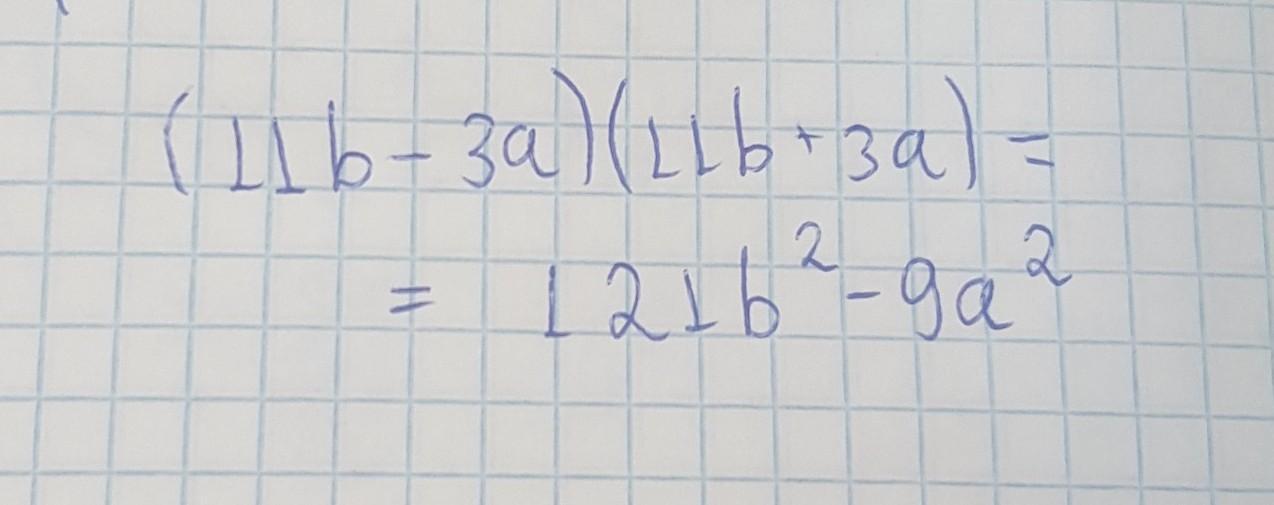 (11b-3a)(11b+3a)=
= 121b²-9a²